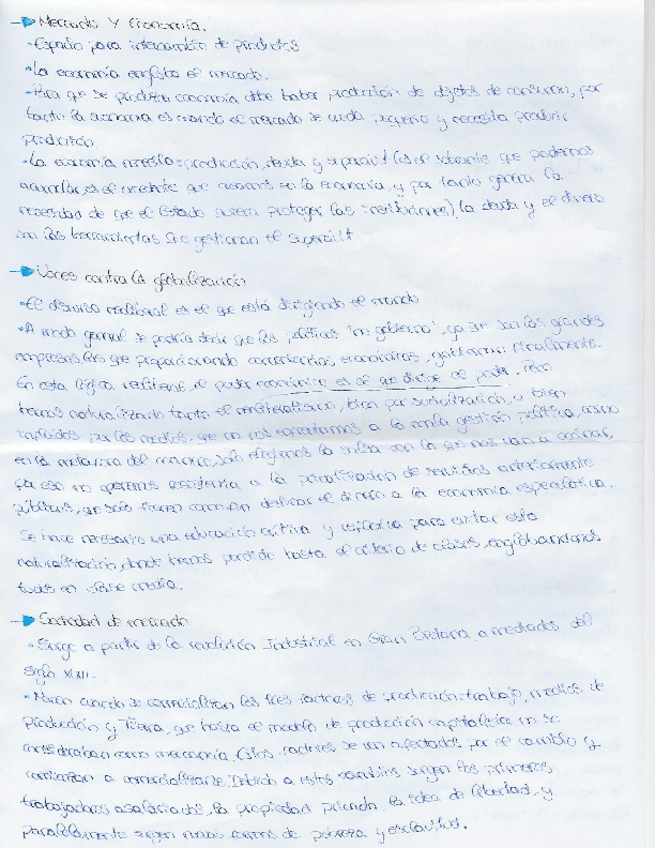 → Mercado y Economía.
- Espacio para intercambio de productos
- La economía engloba el mercado.
- Para que se produzca economía debe haber producción de objetos de consumo, por
tanto la economía es cuando el mercado se queda pequeño y necesita producir
producción.
- La economía necesita: producción, deuda y superávit (es el sobrante que podemos
acumular, es el excedente que creamos en la economía, y por tanto genera la
necesidad de que el Estado quiera proteger las instituciones), la deuda y el dinero
son las herramientas que gestionan el superávit
→ Voces contra la globalización
- El discurso neoliberal es el que está dirigiendo el mundo
- A modo general se podría decir que los políticos "no gobiernan", ya que son las grandes
empresas las que proporcionando económicas, gobiernan finalmente.
En esta lógica neoliberal, el poder económico es el que divide el poder.
hemos naturalizado tanto el neoliberalismo, bien por socialización, o bien
influidos por los medios, que no nos enfrentamos a la mala gestión política, como
en la metáfora del, sólo elegimos la salsa con la que nos van a cocinar,
ya que no oponemos resistencia a la privatización de servicios anteriormente
públicos, que sólo tienen como fin destinar el dinero a la economía especulativa.
Se hace necesario una educación crítica y para evitar esta
naturalización, donde hemos perdido hasta el criterio de clases, englobándonos
todos en clase media.
→ Sociedad de mercado
- Surge a partir de la revolución Industrial en Gran Bretaña a mediados del
siglo XVIII.
- Nacen cuando se comercializan los tres factores de producción: trabajo, medios de
producción y Tierra, que hasta el modelo de producción capitalista no se
consideraban como mercancía. Estos factores se ven afectados por el cambio y
comienzan a comercializarse. Debido a estos cambios surgen los primeros
trabajadores asalariados, la propiedad privada, la idea de libertad, y
paralelamente surgen nuevas formas de pobreza y esclavitud.